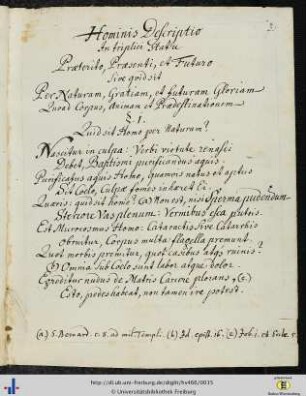 3.
Hominis Descriptio
In triplici Statu
Praeterito, Praesenti, et Futuro
sive quid sit
Per Naturam, Gratiam, et futuram Gloriam
Quoad Corpus, Animam et Praedestinationem
§. 1.
Quid sit Homo per Naturam?
Nascitur in culpa: Verbi virtute renasci
Debet, Baptismi purificandus aquis.
Purificatus aquis Homo, quamvis natus et aptus
Sit Coelo, Culpae fomes inhaeret Ei.
Quaeris: quid sit homo? (a) Non est, nisi Sperma pudendum
Stercore Vas plenum: Vermibus esca putris.
Est Microcosmus Homo: Cataractis sive Catarrhis
Obruitur, Corpus multa flagella premunt.
Quot morbis premitur, quot casibus atque ruinis?
(b) Omnia sub Coelo sunt labor atque dolor.
Egreditur nudus de Matris Carcere plorans, (c)
Esto, pedes habeat, non tamen ire potest.
(a) S. Bernard. c. 8. ad mil. Templi. (b) Id. epist. 16. (c) Job. 1. et
http://dl.ub.uni-freiburg.de/diglit/hs466/0015
© Universitätsbibliothek Freiburg